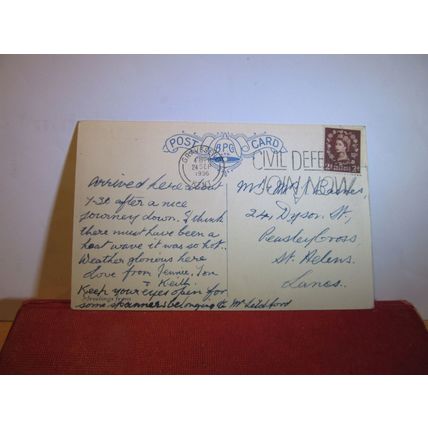 POST B.P.G CARD
GRAVESEND
24 SEP
1956
KENT
CIVIL DEFE
JOIN NOW
Arrived here about
7-30 after a nice
journey down. I think
there must have been a
heat wave it was so hot.
Weather glorious here
Love from Jennie, Tom
& Keith.
Keep your eyes open for
Greetings from
some spanners belonging to Mr Lildford
Mr & Mrs Barnes,
24, Dyson St,
Peasley Cross
St. Helens
Lancs.